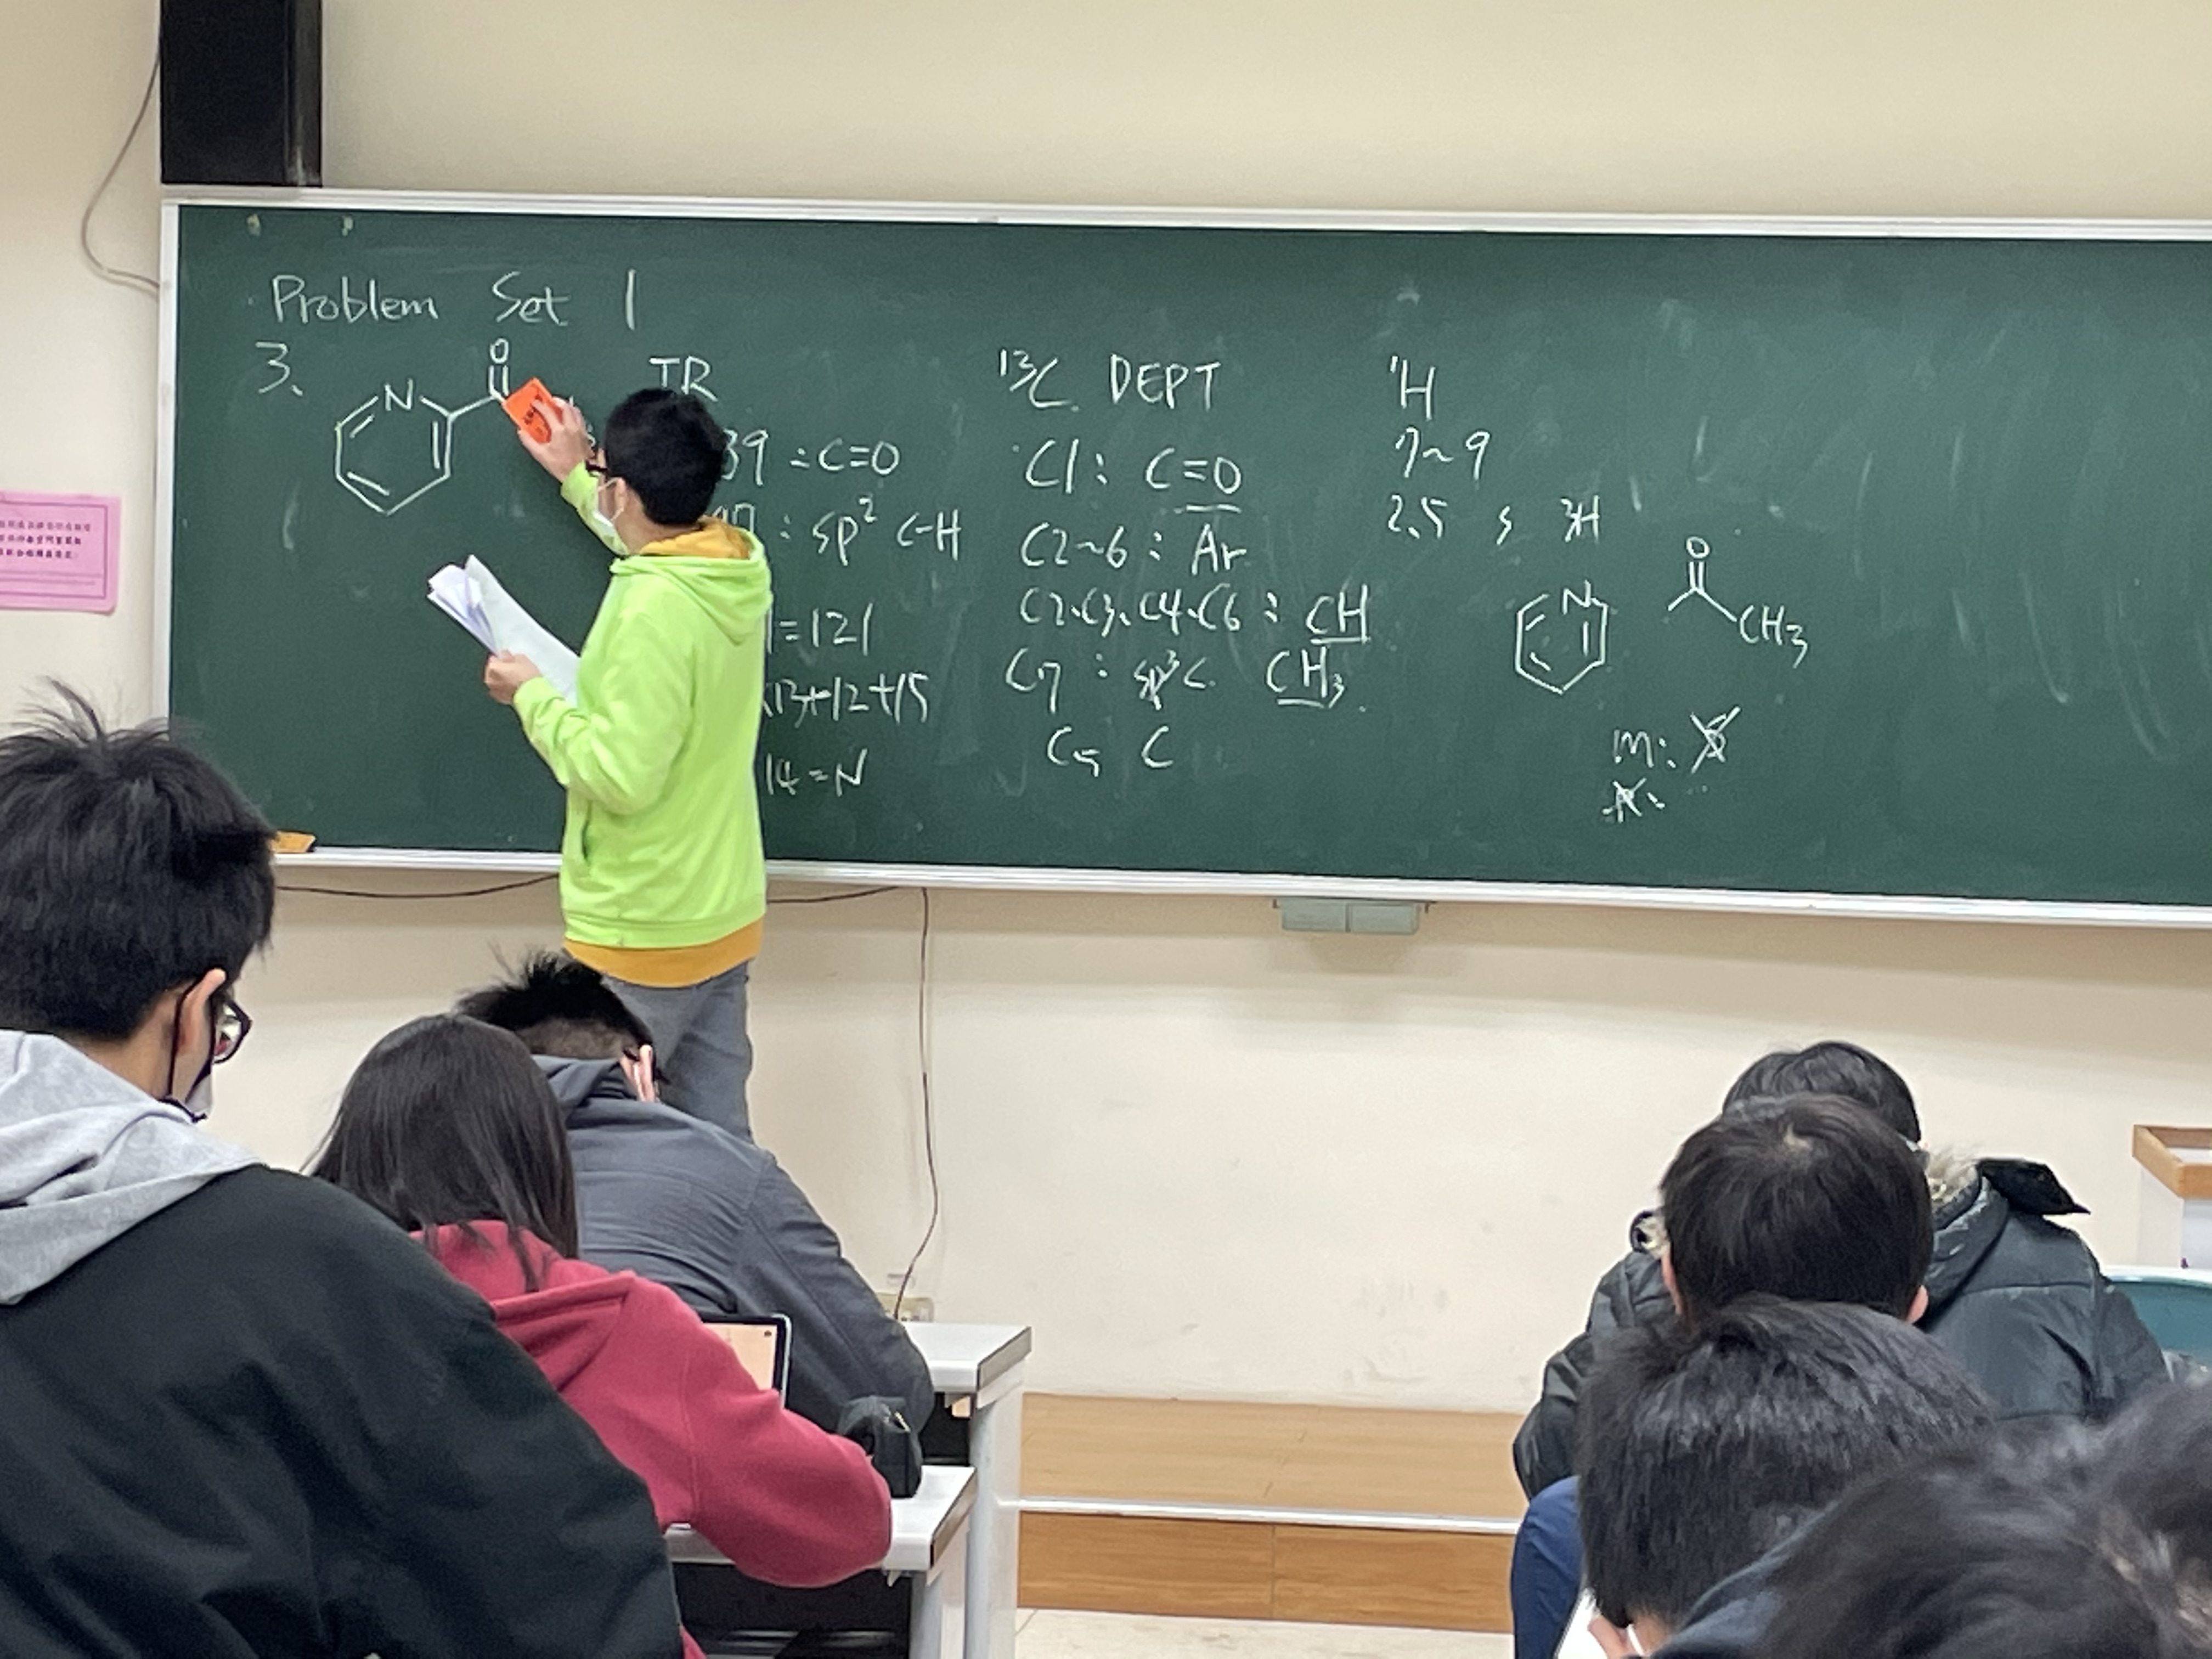 Problem Set 1
3.
O
N
IR
39 : C=O
: sp² C-H
=121
13+12+15
14=N
¹³C DEPT
C1: C=O
C2~6 : Ar
C2、C3、C4、C6 : CH
C7 : sp³ C. CH₃.
C5 C
¹H
7~9
2.5 s 3H
N
O
CH₃
m: